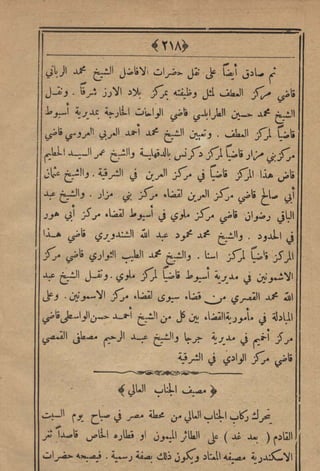 ﴿٢١٨﴾
ثم صادق أيضاً على نقل حضرات الافاضل الشيخ محمد الرباني
قاضي مركز العطف لمثل وظيفته بمركز بلاد الارز شرقاً . ونقل
الشيخ محمد حسين الطرابلسي قاضي الواحات الخارجة بمديرية أسيوط
قاضياً لمركز العطف . وتعيين الشيخ محمد أحمد العربي العروسي قاضي
مركز بني مزار قاضياً لمركز دكرنس بالدقهلية والشيخ عمر السيد الحطيم
قاض هذا المركز قاضياً في مركز العرين في الشرقية . والشيخ عثمان
أبي صالح قاضي مركز العرين لقضاء مركز بني مزار . والشيخ عبد
الباقي رضوان قاضي مركز ملوي في أسيوط لقضاء مركز أبي هور
في الحدود . والشيخ محمد محمود عبد الله الشندويري قاضي هذا
المركز قاضياً لمركز اسنا . والشيخ محمد الطيب النواري قاضي مركز
الاشمونين في مديرية أسيوط قاضياً لمركز ملوي . ونقل الشيخ عبد
الله محمد القصري من قضاء سيوى لقضاء مركز الاسمونين . وعلى
المبادلة في مأمورية القضاء بين كل من الشيخ أحمد حسن الواسطي قاضي
مركز أخميم في مديرية جرجا والشيخ عبد الرحيم مصطفى القمصي
قاضي مركز الوادي في الشرقية
﴿ مصيف الجناب العالي ﴾
يتحرك ركاب الجناب العالي من محطة مصر في صباح يوم السبت
القادم ( بعد غد ) على الطائر الميمون او قطاره الخاص قاصداً ثغر
الاسكندرية مصيفه المعتاد ويكون ذلك بصفة رسمية . فيصحبه حضرات